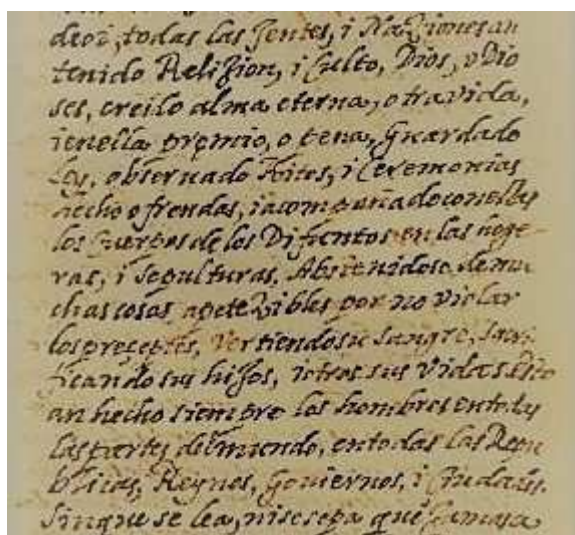 deoz, todas las Jentes, i Naziones an
tenido Relizion, i Culto, Dios, o Dio
ses, creilo alma eterna, otra vida,
i enella premio, o pena, Guardado
Ley, observado Ritos, i Ceremonias
hecho ofrendas, i acompañado con ellas
los Cuerpos de los Difuntos en las hogue-
ras, i Sepulturas. Abstenidose de mu
chas cosas apetezibles por no violar
los preceptos, Vertiendo su Sangre, Sacri
ficando sus hijos, i otros sus Vidas. Esto
an hecho siempre los hombres en todas
las partes del mundo, en todas las Repu
blicas, Reynos, Goviernos, i Ciudades.
Sin que se lea, ni se sepa que Jamas a